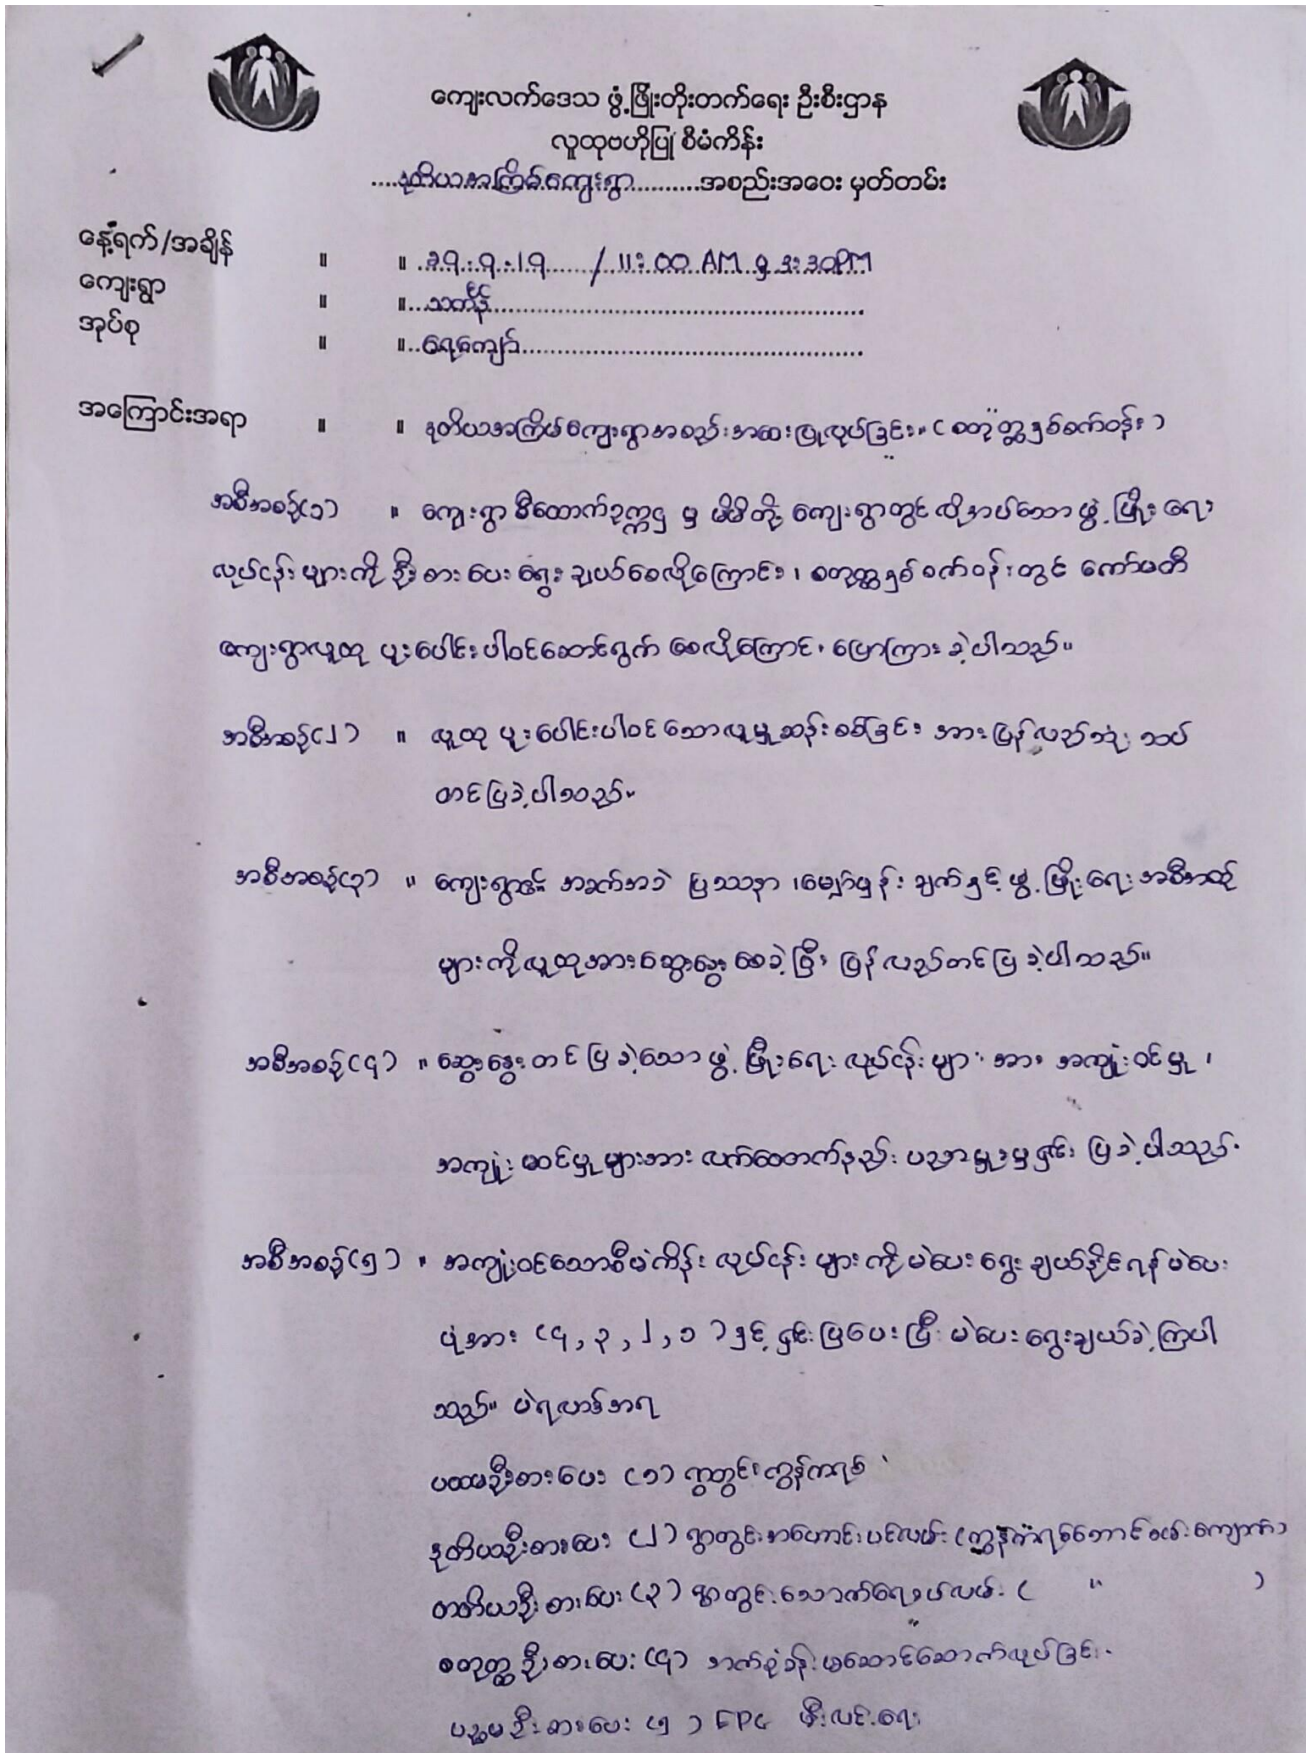 ကျေးလက်ဒေသ ဖွံ့ဖြိုးတိုးတက်ရေး ဦးစီးဌာန
လူထုဗဟိုပြု စီမံကိန်း
....ဒုတိယအကြိမ်ကျေးရွာ..........အစည်းအဝေး မှတ်တမ်း
နေ့ရက်/အချိန် ။ ။ ..29.9.19....../11:00 AM မှ 3:30PM
ကျေးရွာ ။ ။...သင်္ကန်း..........
အုပ်စု ။ ။..ရေကျော်..........
အကြောင်းအရာ ။ ။ ဒုတိယအကြိမ်ကျေးရွာအစည်းအဝေးပြုလုပ်ခြင်း။ (စတုတ္ထနှစ်စက်ဝန်း)
အစီအစဉ်(၁) ။ ကျေးရွာစီထောက်ဥက္ကဌ မှ မိမိတို့ ကျေးရွာတွင် လိုအပ်သော ဖွံ့ဖြိုးရေး
လုပ်ငန်းများကို ဦးစားပေးရွေးချယ်စေလိုကြောင်း၊ စတုတ္ထနှစ်စက်ဝန်းတွင် ကော်မတီ
ကျေးရွာလူထု ပူးပေါင်းပါဝင်ဆောင်ရွက် စေလိုကြောင်း ပြောကြားခဲ့ပါသည်။
အစီအစဉ်(၂) ။ လူထု ပူးပေါင်းပါဝင်သောလူမှုဆန်းစစ်ခြင်း အားပြန်လည်သုံးသပ်
တင်ပြခဲ့ပါသည်။
အစီအစဉ်(၃) ။ ကျေးရွာ၏ အခက်အခဲ ပြဿနာ ၊မျှော်မှန်းချက်နှင့် ဖွံ့ဖြိုးရေးအစီအစဉ်
များကိုလူထုအားဆွေးနွေးစေခဲ့ပြီး ပြန်လည်တင်ပြခဲ့ပါသည်။
အစီအစဉ်(၄) ။ ဆွေးနွေးတင်ပြခဲ့သော ဖွံ့ဖြိုးရေးလုပ်ငန်းများ အား အကျုံးဝင်မှု ၊
အကျုံးမဝင်မှုများအား လက်ထောက်နည်းပညာမှူးမှရှင်းပြခဲ့ပါသည်။
အစီအစဉ်(၅) ။ အကျုံးဝင်သောစီမံကိန်းလုပ်ငန်းများကိုမဲပေးရွေးချယ်နိုင်ရန်မဲပေး
ပုံအား (၄,၃,၂,၁)နှင့် ရှင်းပြပေးပြီး မဲပေးရွေးချယ်ခဲ့ကြပါ
သည်။ မဲရလာဒ်အရ
ပထမဦးစားပေး (၁) ရွာတွင်းကွန်ကရစ်
ဒုတိယဦးစားပေး (၂) ရွာတွင်းအဟောင်းပင်လမ်း (ကွန်ကရစ်ဘောင်ခင်းကျောက်)
တတိယဦးစားပေး (၃) ရွာတွင်းသောက်ရေ လမ်း ( " )
စတုတ္ထဦးစားပေး (၄) ဆောင်ဆောက်လုပ်ခြင်း
ပဉ္စမဦးစားပေး (၅) EPC မီးလင်းရေး